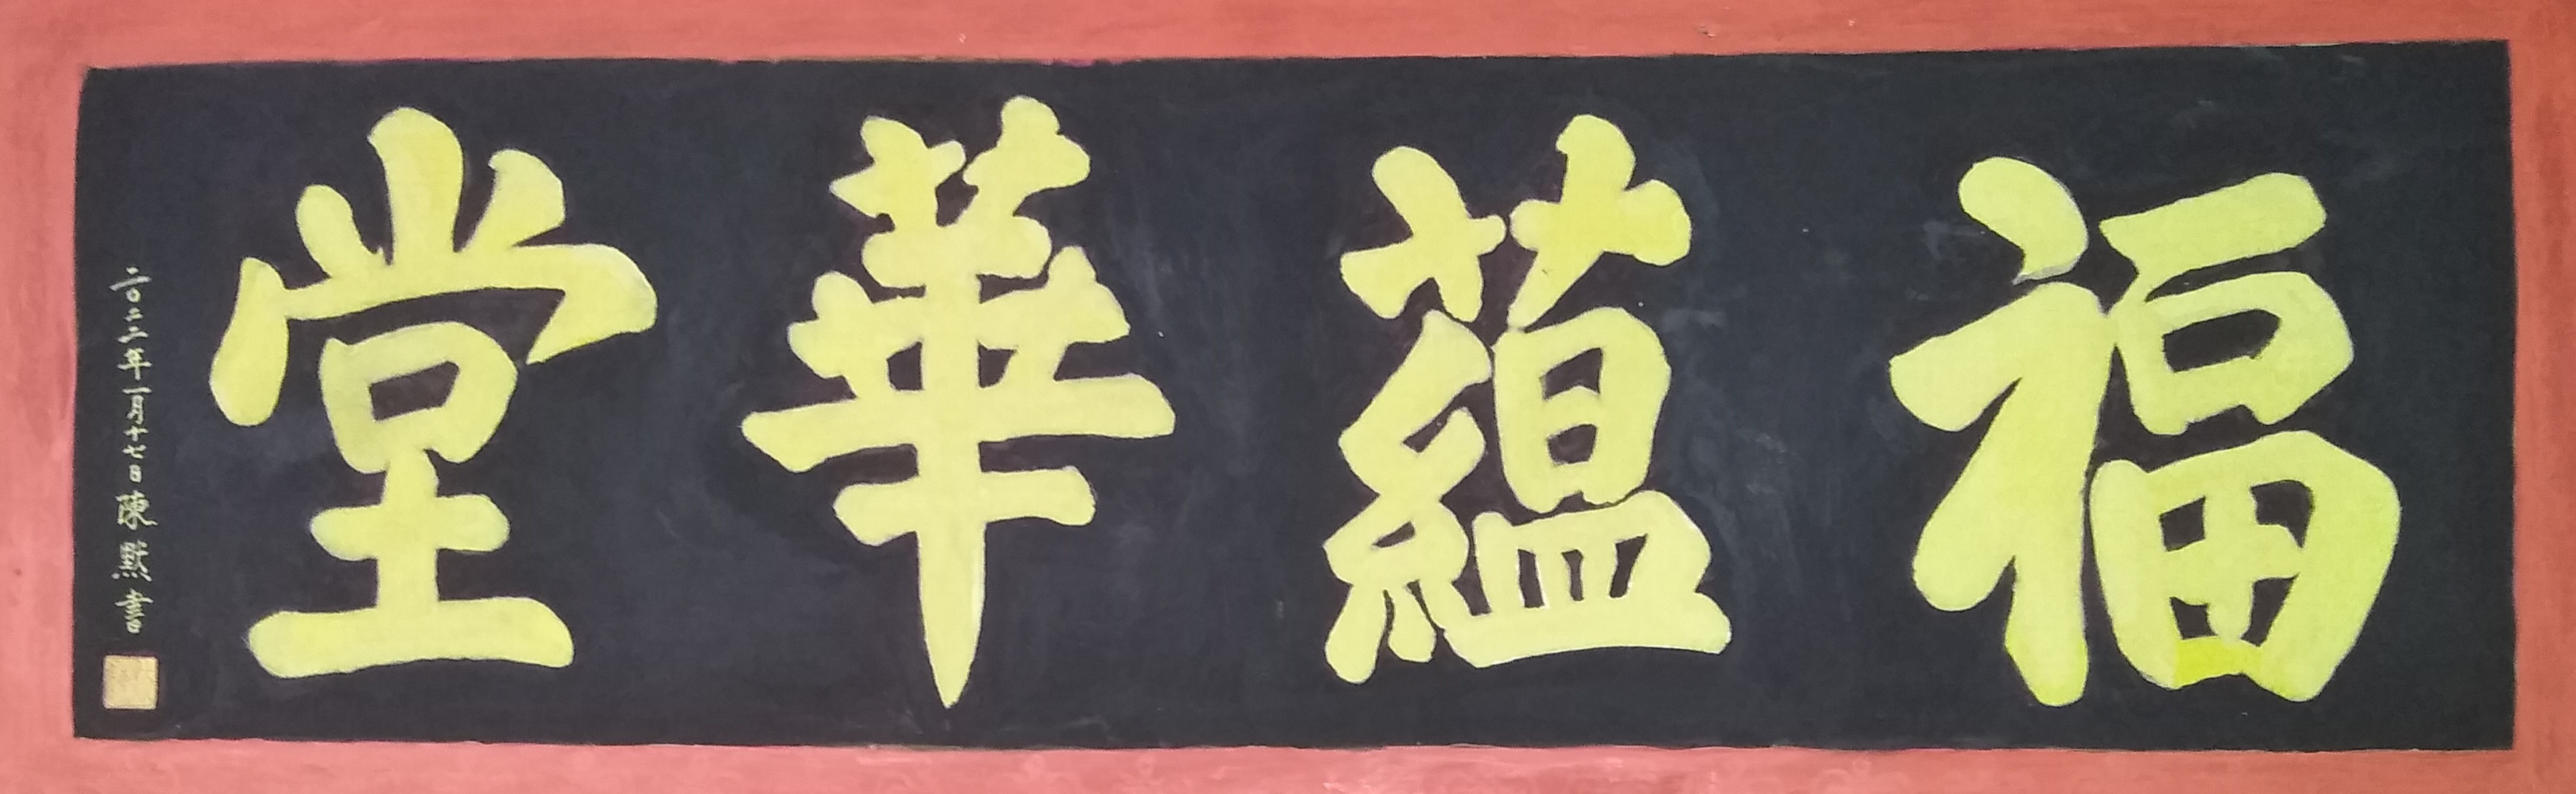 福蘊華堂
二〇二二年一月十七日陳默書